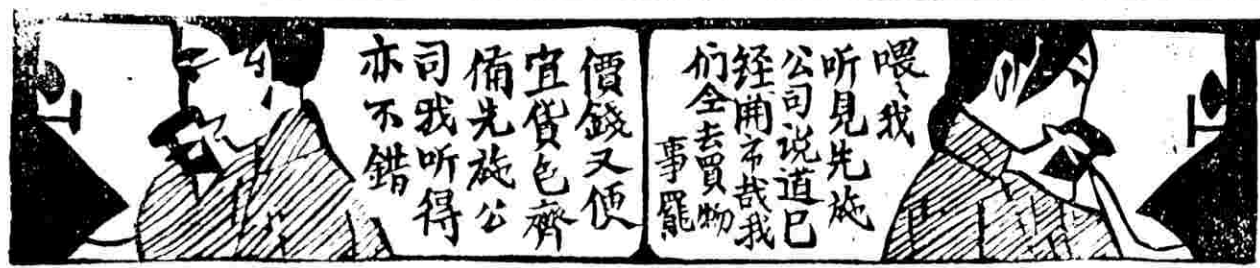 喂、我
听見先施
公司说道已
經開市哉我
们仝去買物
事罷
價錢又便
宜貨色齊
俻先施公
司我听得
亦不錯